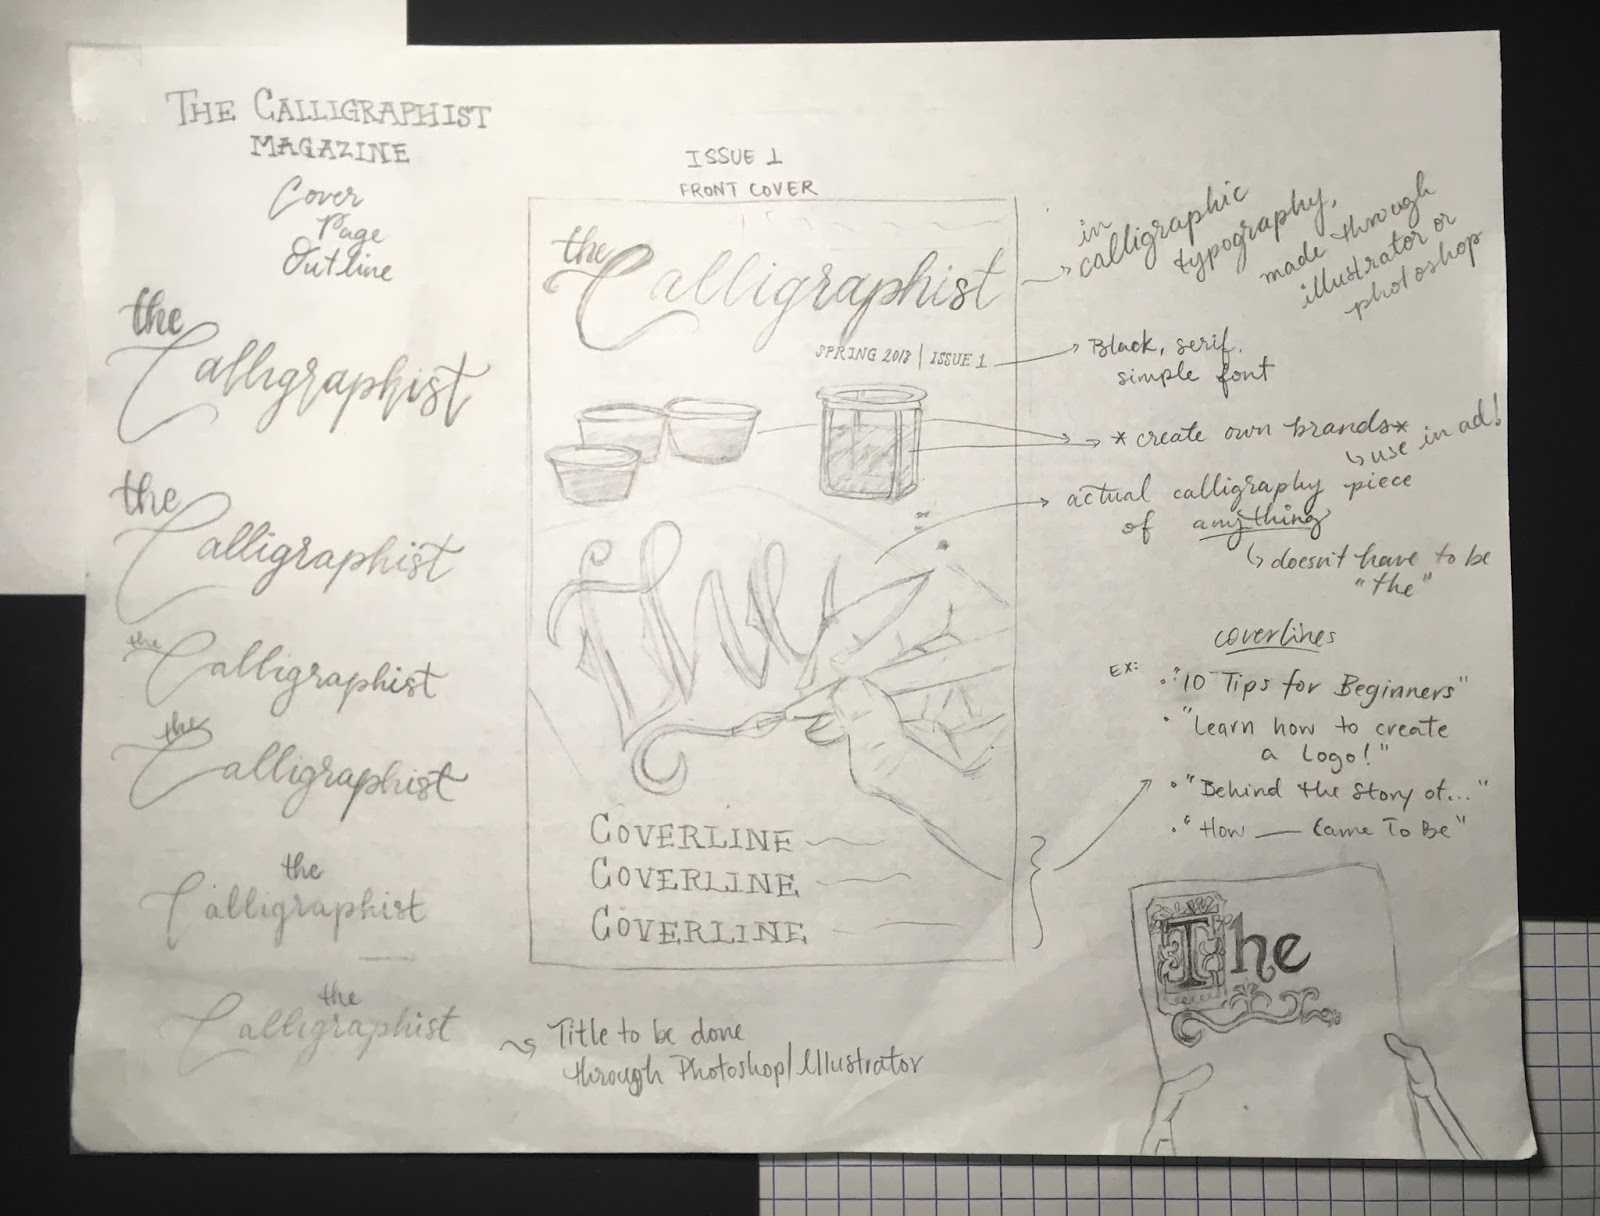 THE CALLIGRAPHIST
MAGAZINE
Cover
Page
Outline
the
Calligraphist
the
Calligraphist
the
Calligraphist
the
Calligraphist
the
Calligraphist
the
Calligraphist
Title to be done
through Photoshop/Illustrator
ISSUE 1
FRONT COVER
the
Calligraphist
SPRING 2018 | ISSUE 1
The
COVERLINE
COVERLINE
COVERLINE
in
calligraphic
typography,
made through
illustrator or
photoshop
Black, serif,
simple font
*create own brands*
use in ad!
actual calligraphy piece
of anything
doesn't have to be
"the"
coverlines
EX:
• "10 Tips for Beginners"
• "Learn how to create
a Logo!"
• "Behind the Story of..."
• "How __ Came To Be"
The